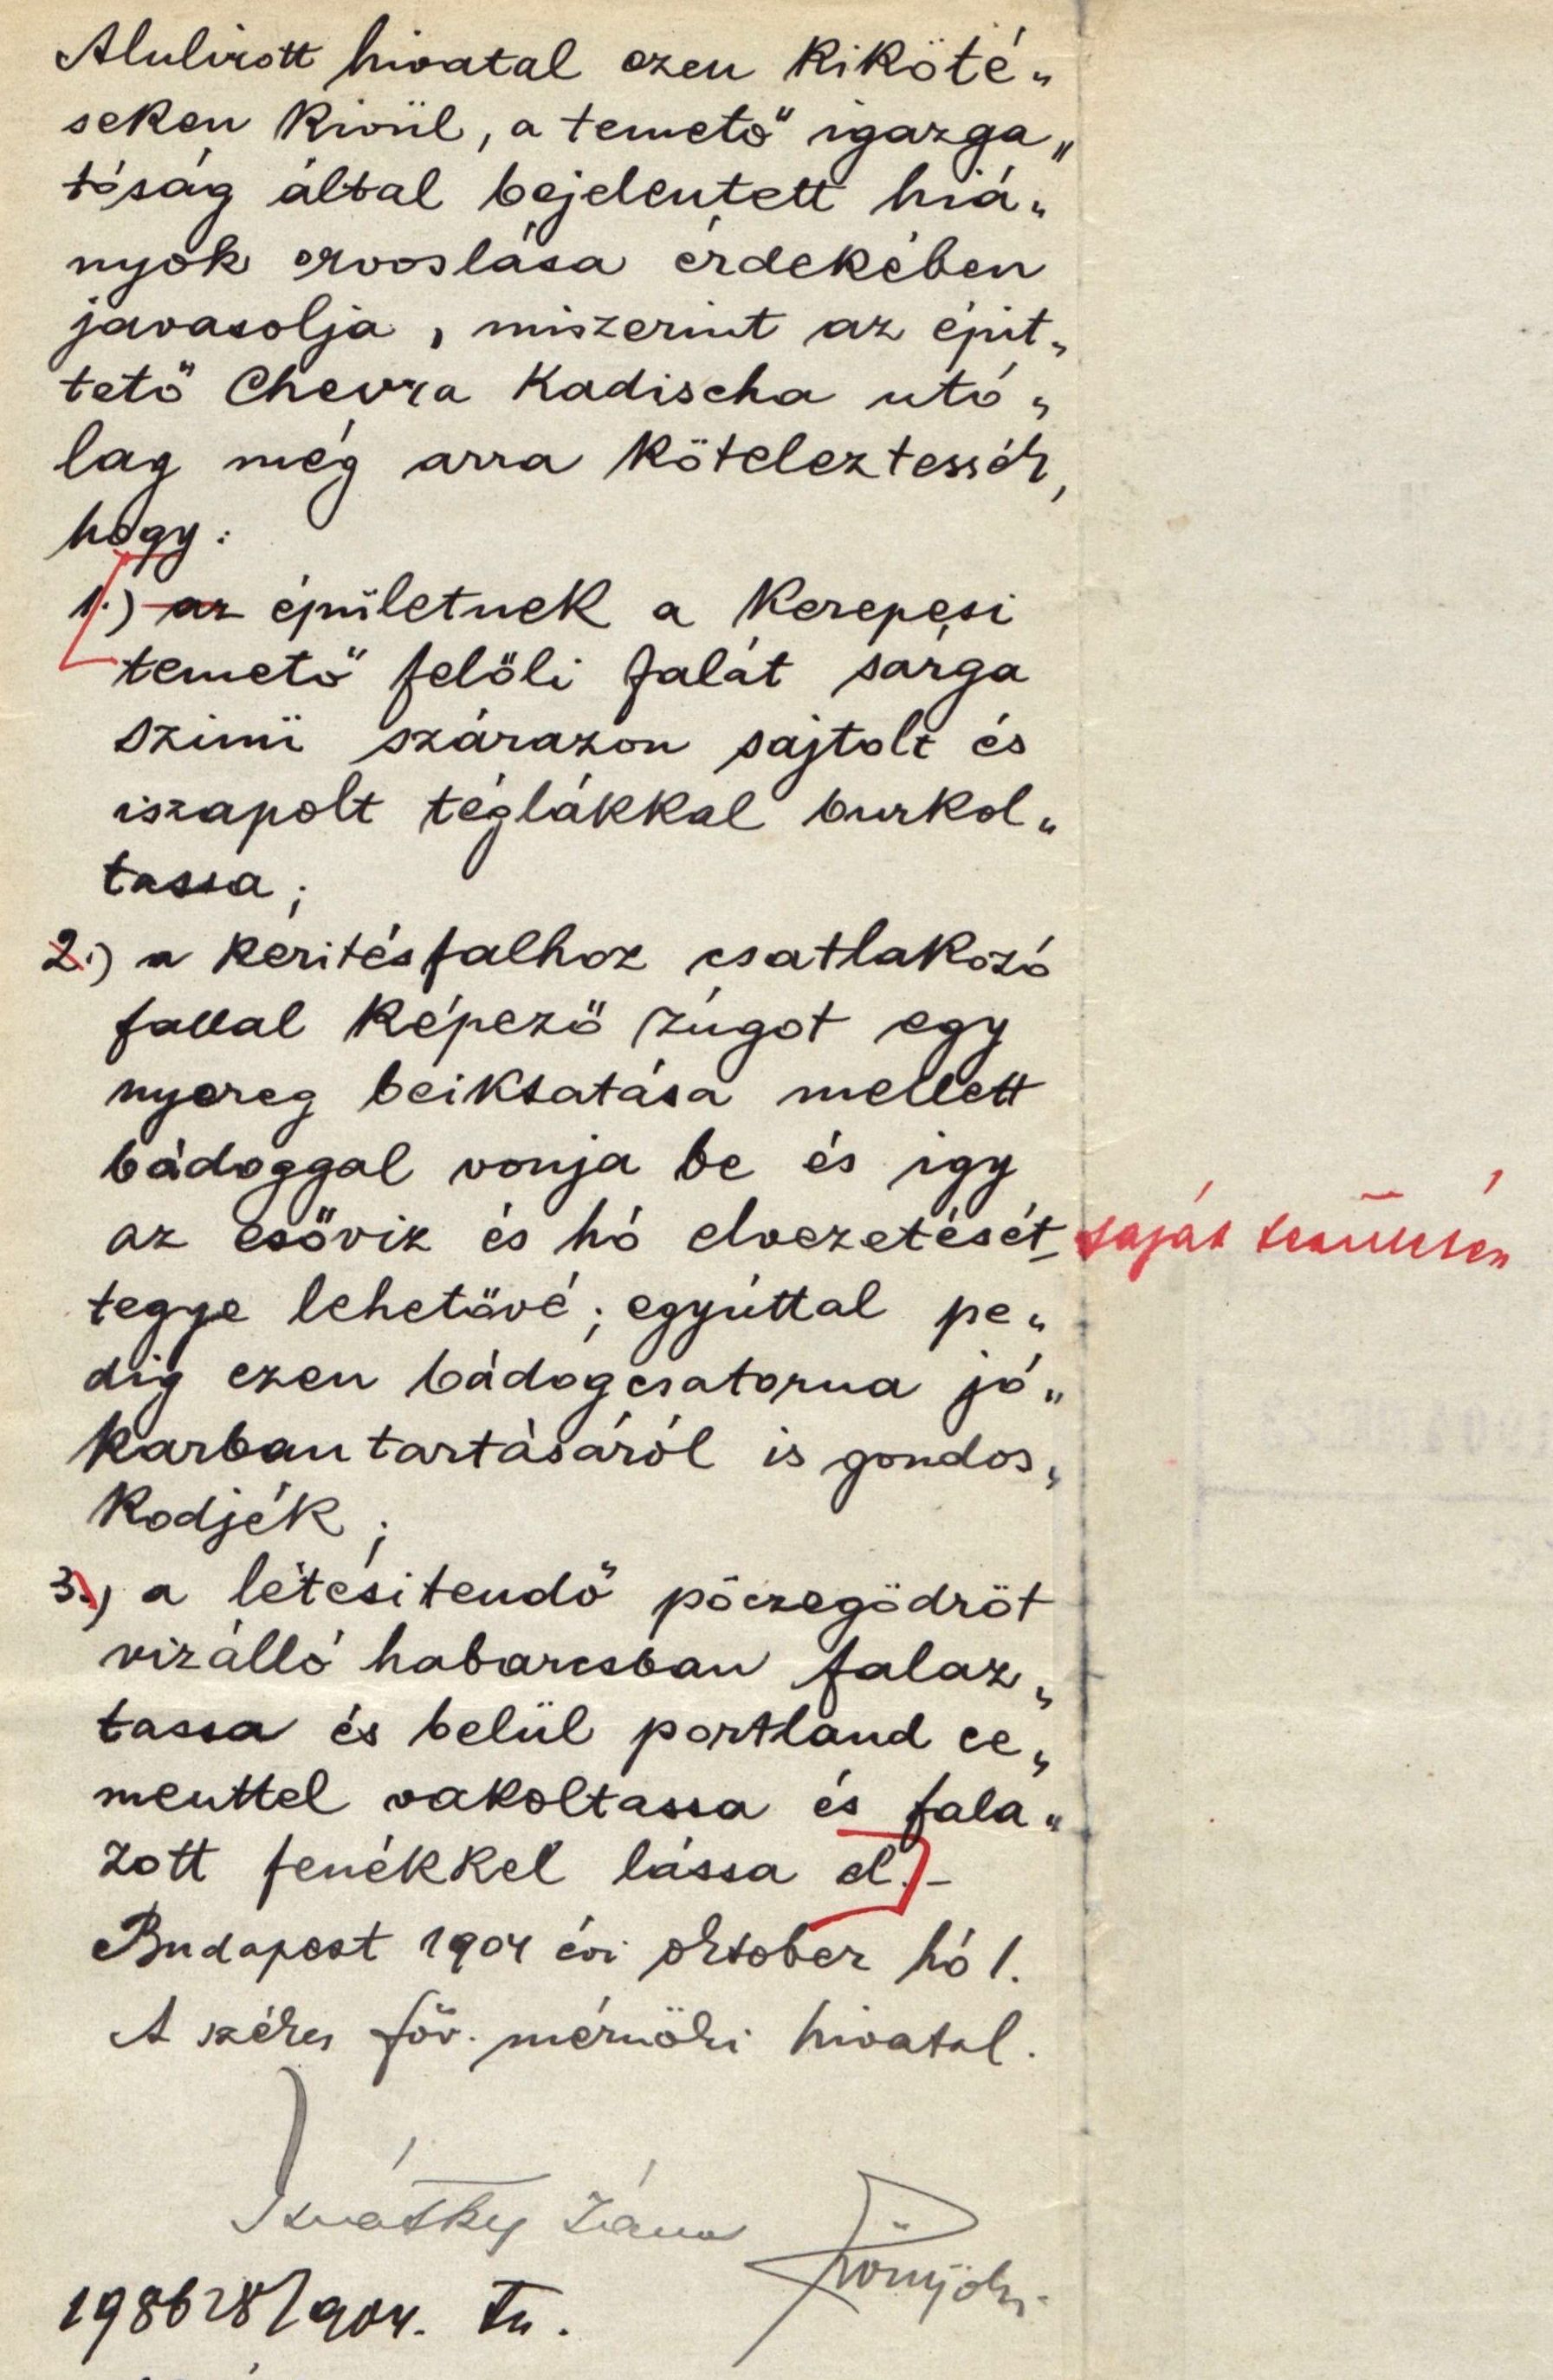 Alulirott hivatal ezen kiköté„
seken kivül, a temető igazga„
tóság által bejelentett hiá„
nyok orvoslása érdekében
javasolja, miszerint az épit„
tető Chevra Kadischa utó„
lag még arra köteleztessék,
hogy:
1.) az épületnek a Kerepesi
temető felöli falát sárga
szinü szárazon sajtolt és
iszapolt téglákkal burkol„
tassa;
2.) a keritésfalhoz csatlakozó
fallal képező zúgot egy
nyereg beiktatása mellett
bádoggal vonja be és igy
az esőviz és hó elvezetését saját területén
tegye lehetővé; egyúttal pe„
dig ezen bádogcsatorna jó„
karbantartásáról is gondos„
kodjék;
3.) a létésitendő pöczegödröt
vizálló habarcsban falaz„
tassa és belül portland ce„
menttel vakoltassa és fala„
zott fenékkel lássa el.-
Budapest 1904 évi oktober hó 1.
A székes föv. mérnöki hivatal.
198628/904. tn.